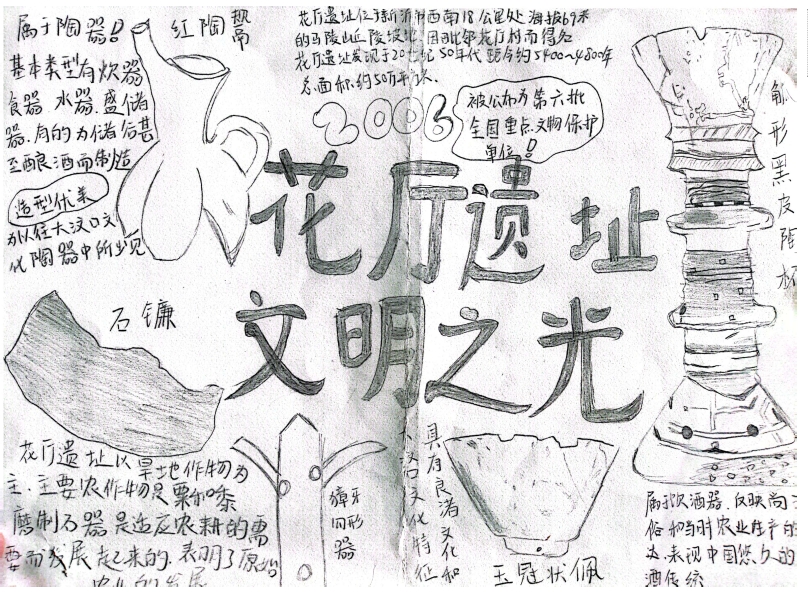 属于陶器!
红陶鬶
基本类型有炊器
食器 水器.盛储
器.有的为储谷甚
至酿酒而制造
造型优美
为以往大汶口文
化陶器中所少见
花厅遗址位于新沂市西南18公里处 海拔69米
的马陵山丘陵坡地.因北邻花厅村而得名
花厅遗址发现于20世纪50年代 距今约5400~4800年
总面积约50万平方米.
2006
被公布为第六批
全国重点文物保护
单位!
花厅遗址
文明之光
觚形黑皮陶杯
石镰
花厅遗址以旱地作物为
主.主要农作物是粟和黍
磨制石器是适应农耕的需
要而发展起来的.表明了原始
农业的发展
獐牙
勾形
器
具有良渚文化和
大汶口文化特征
玉冠状佩
属于饮酒器.反映尚
俗和当时农业生产的
达.表现中国悠久的
酒传统